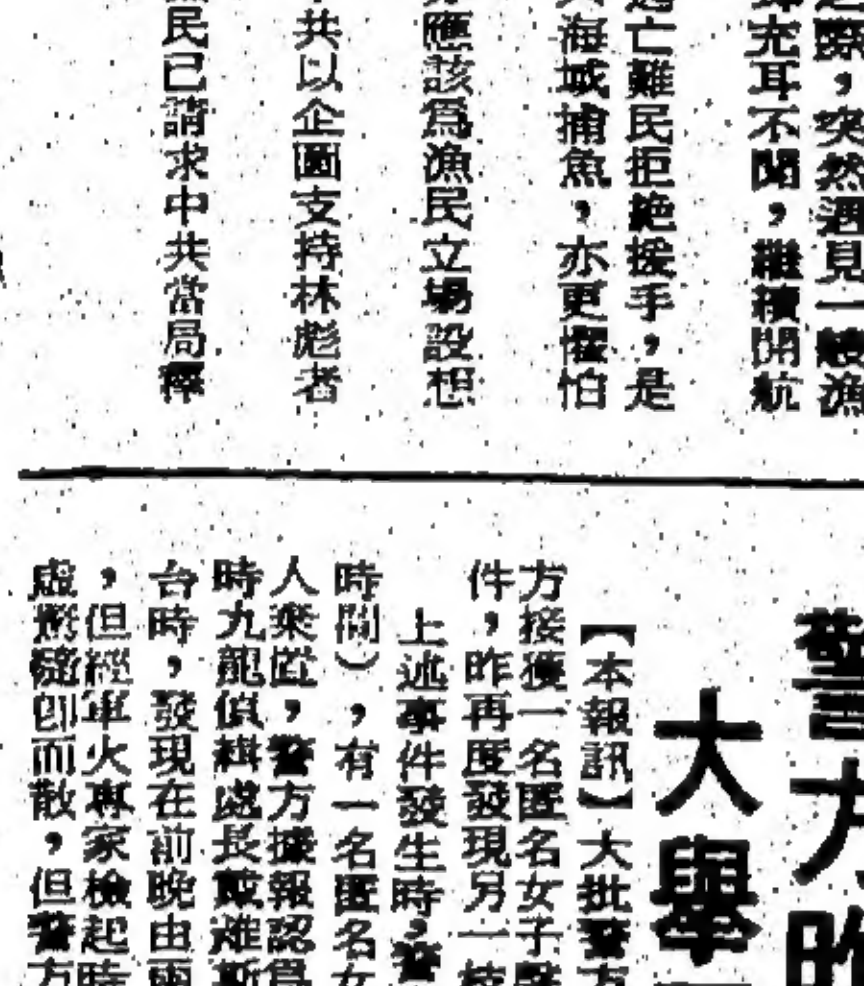 之際，突然遇見一艘漁
充耳不聞，繼續開航
亡難民拒絕援手，是
海域捕魚，亦更懼怕
應該爲漁民立場設想
共以企圖支持林彪者
民已請求中共當局釋
警方昨
大舉
【本報訊】大批警方
方接獲一名匿名女子
件，昨再度發現另一枝
上述事件發生時，警
時間），有一名匿名女
人棄置，警方據報認爲
時九龍偵緝處長戴維斯
台時，發現在前晚由兩
，但經軍火專家檢起時
虛驚隨即而散，但警方